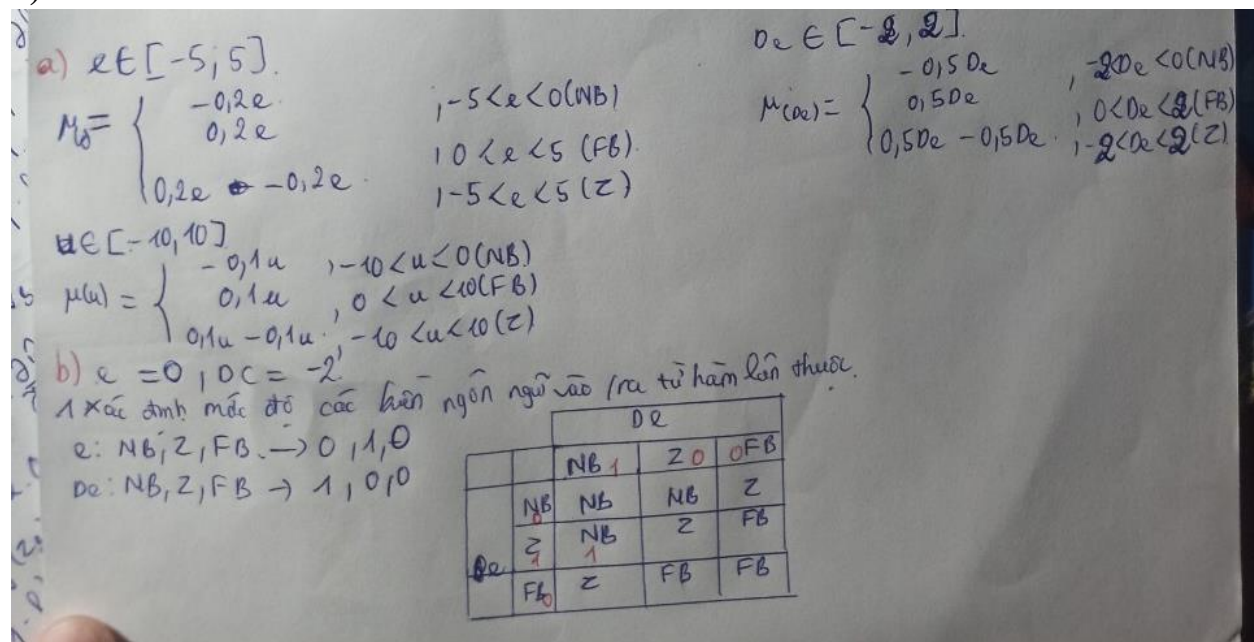 a) e ∈ [-5; 5].
De ∈ [-2, 2].
μe = { -0,2e. ; -5 < e < 0 (NB)
0,2e ; 0 < e < 5 (FB).
0,2e -0,2e. ; -5 < e < 5 (Z)
μ(De) = { -0,5De , -2De < 0 (NB)
0,5De ; 0 < De < 2 (FB)
0,5De - 0,5De. ; -2 < De < 2 (Z)
u ∈ [-10, 10]
μ(u) = { -0,1u ; -10 < u < 0 (NB)
0,1u , 0 < u < 10 (FB)
0,1u - 0,1u. , -10 < u < 10 (Z)
b) e = 0, De = -2
1 Xác định mức độ các biến ngôn ngữ vào/ra từ hàm liên thuộc.
e: NB, Z, FB. → 0, 1, 0
De: NB, Z, FB → 1, 0, 0
De
NB 1 Z 0 0 FB
NB 0 NB NB Z
e Z 1 NB 1 Z FB
FB 0 Z FB FB